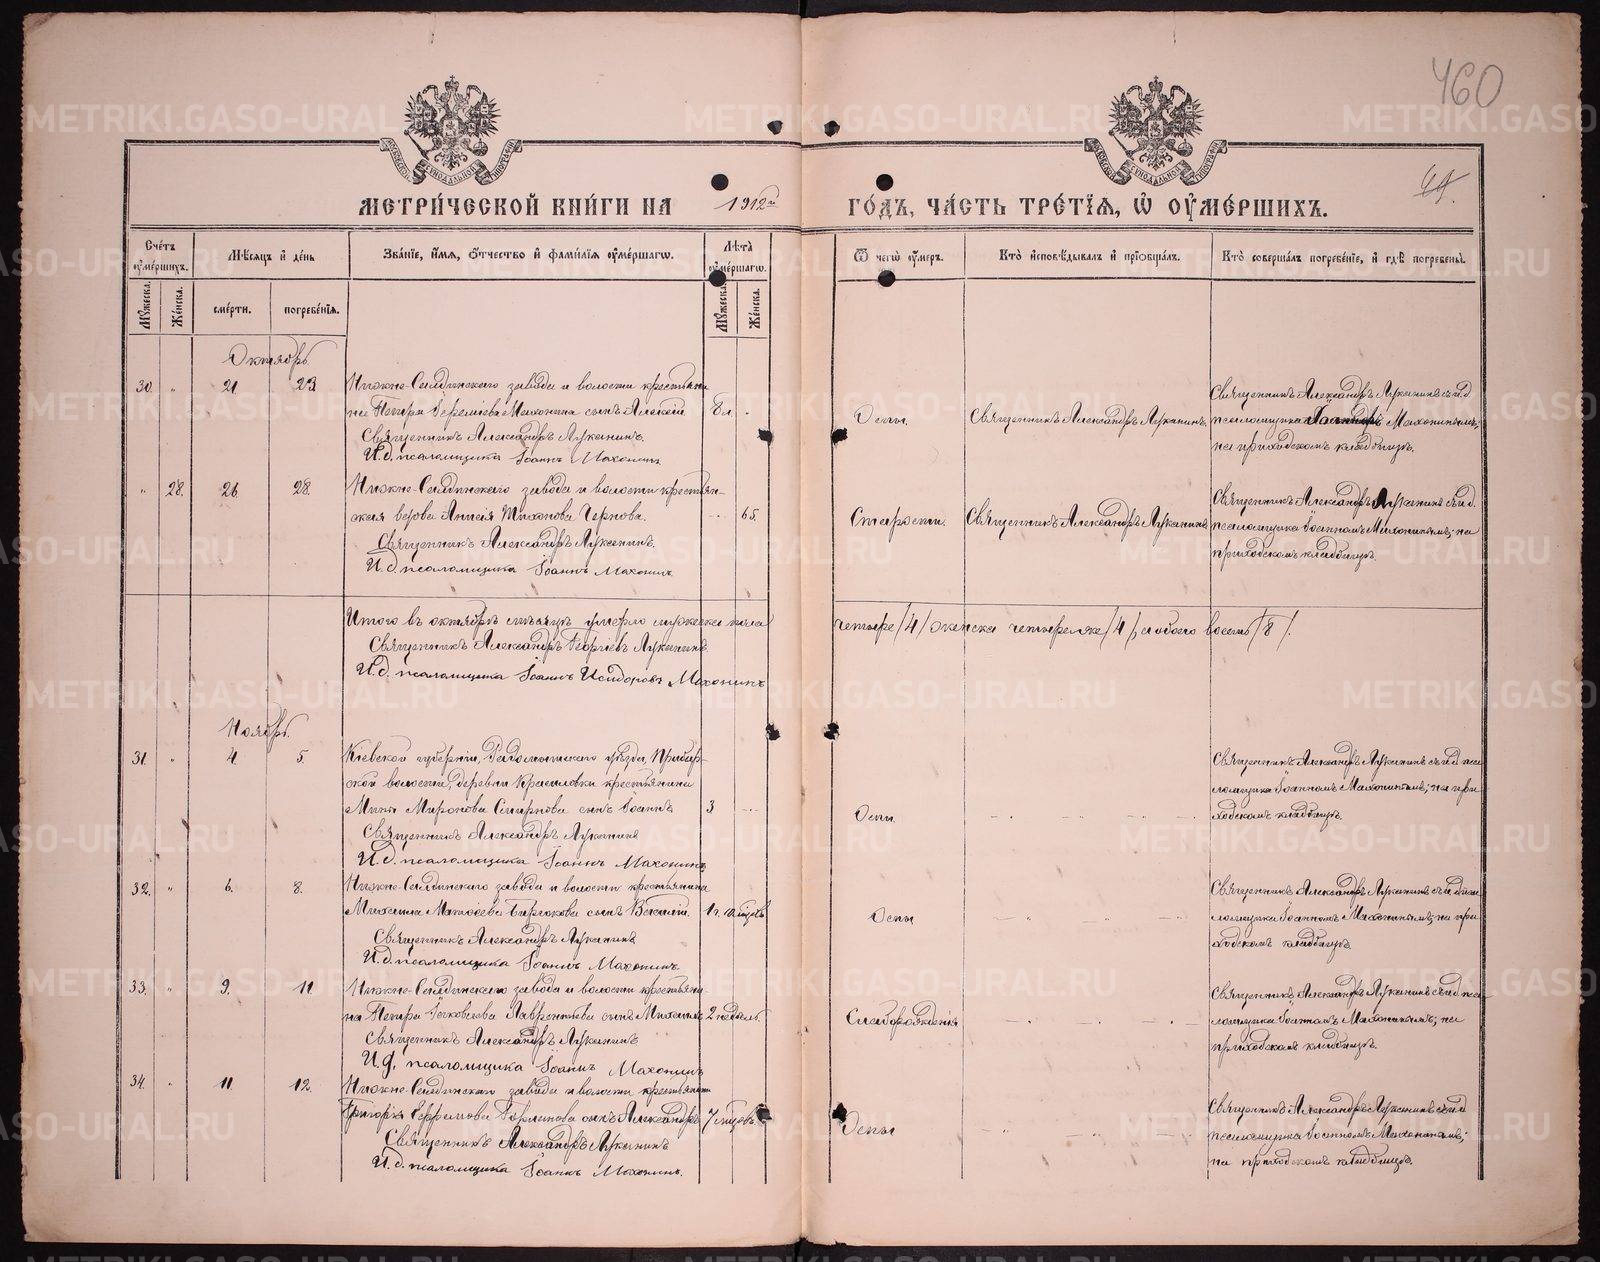 460
44.
МЕТРИ́ЧЕСКОЙ КНИ́ГИ НА 1912й ГО́ДЪ, ЧА́СТЬ ТРЕ́ТІѦ, Ѡ ОУМЕ́РШИХЪ.
Сче́тъ оуме́ршихъ.
Мѣ́сяцъ и҆ де́нь
Зва́ніе, и҆́мѧ, ѻ҆́тчество и҆ фами́лїѧ оуме́ршагѡ.
Лѣ́та оуме́ршагѡ.
Ѿ чегѡ̀ оу́меръ.
Кто̀ и҆сповѣ́дывалъ и҆ прїѡбща́лъ.
Кто̀ соверша́лъ погребе́нїе, и҆ гдѣ̀ погребены̀.
Му́жеска.
Же́нска.
сме́рти.
погребе́нїѧ.
Му́жеска.
Же́нска.
Октябрь
30. " 21 23. Нижне-Салдинскаго завода и волости крестьяни-
на Петра Еремѣева Махонина сынъ Алексій. 8 л. -
Священникъ Александръ Луканинъ.
И.д. псаломщика Іоаннъ Махонинъ
Оспы.
Священникъ Александръ Луканинъ.
Священникъ Александръ Луканинъ съ и.д.
псаломщика Махонинымъ;
на приходскомъ кладбищѣ.
" 28. 26. 28. Нижне-Салдинскаго завода и волости крестьян-
ская вдова Анисія Тихонова Чернова. - 65.
Священникъ Александръ Луканинъ.
И.д. псаломщика Іоаннъ Махонинъ
Старости.
Священникъ Александръ Луканинъ.
Священникъ Александръ Луканинъ съ и.д.
псаломщика Іоанномъ Махонинымъ; на
приходскомъ кладбищѣ.
Итого въ октябрѣ мѣсяцѣ умерло мужеска пола четыре /4/ женска четыре же /4/, а обоего восемь /8/.
Священникъ Александръ Георгіевъ Луканинъ.
И.д. псаломщика Іоаннъ Исидоровъ Махонинъ
Ноябрь.
31. " 4. 5. Кіевской губерніи, Радомысльскаго уѣзда, Прибор-
ской волости, деревни Красиловки крестьянина
Миронова сынъ Іоаннъ 3 -
Священникъ Александръ Луканинъ
И.д. псаломщика Іоаннъ Махонинъ
Оспы
Священникъ Александръ Луканинъ съ и.д. пса-
ломщика Іоанномъ Махонинымъ; на при-
ходскомъ кладбищѣ.
32. " 6. 8. Нижне-Салдинскаго завода и волости крестьянина
Михаила Матвѣева Бирюкова сынъ 1 г. 10 мѣсяцъ
Священникъ Александръ Луканинъ
И.д. псаломщика Іоаннъ Махонинъ.
Оспы
Священникъ Александръ Луканинъ съ и.д. пса-
ломщика Іоанномъ Махонинымъ, на при-
ходскомъ кладбищѣ.
33. " 9. 11. Нижне-Салдинскаго завода и волости крестьяни-
на Петра Лаврентьева сынъ Михаилъ 2 недѣль.
Священникъ Александръ Луканинъ
И.д. псаломщика Іоаннъ Махонинъ
Слаборожденія
Священникъ Александръ Луканинъ съ и.д. пса-
ломщика Іоанномъ Махонинымъ, на
приходскомъ кладбищѣ.
34. " 11. 12. Нижне-Салдинскаго завода и волости крестьянина
Григорія Ефимова сынъ Александръ 7 мѣсяцъ.
Священникъ Александръ Луканинъ
И.д. псаломщика Іоаннъ Махонинъ.
Оспы
Священникъ Александръ Луканинъ съ и.д.
псаломщика Іоанномъ Махонинымъ;
на приходскомъ кладбищѣ.
METRIKI.GASO-URAL.RU